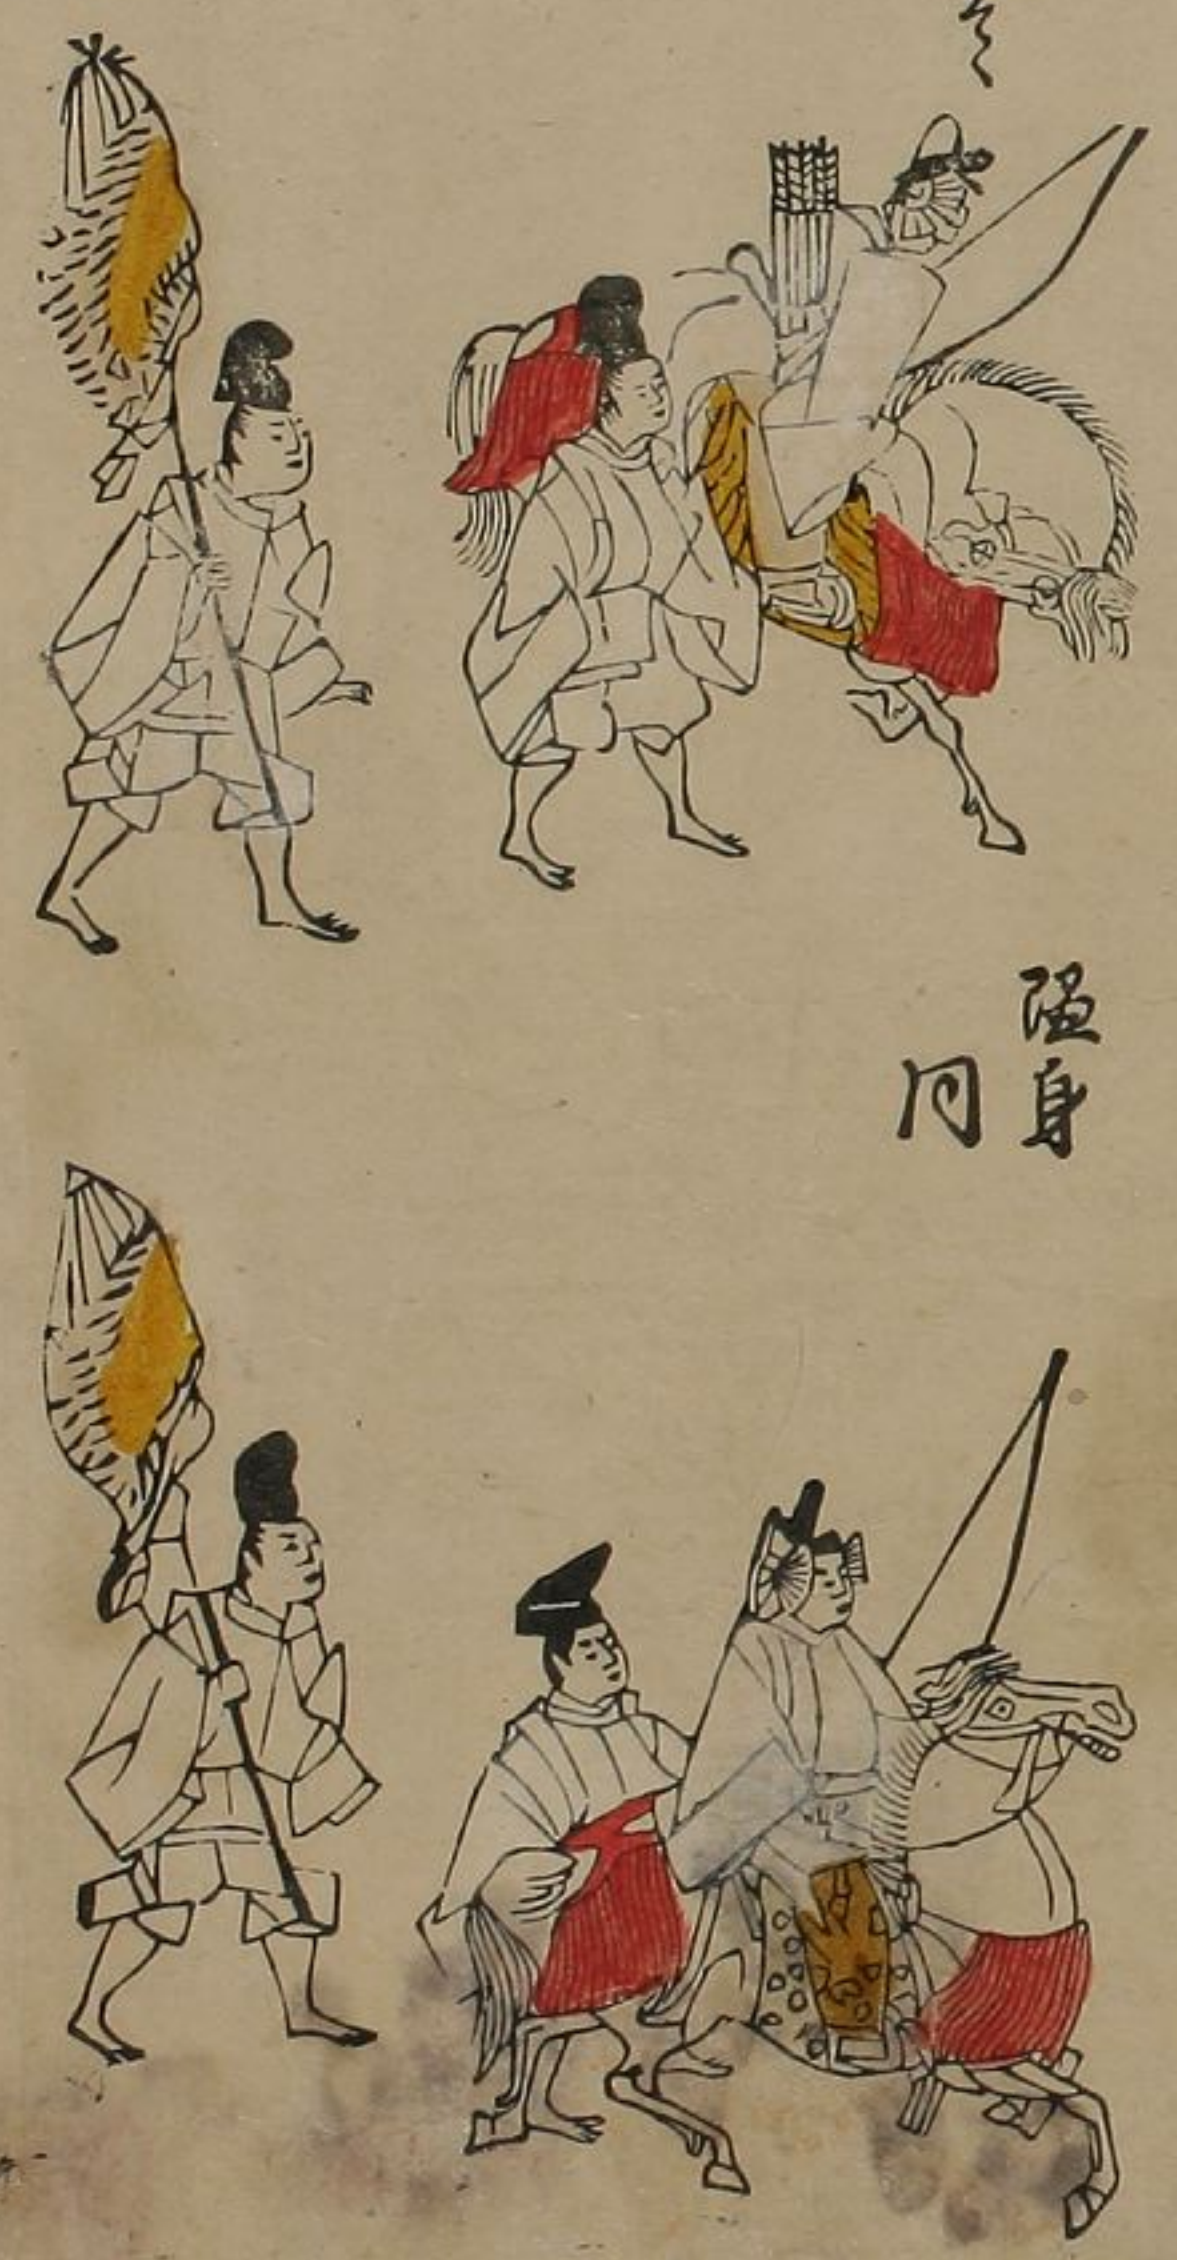 随身
同